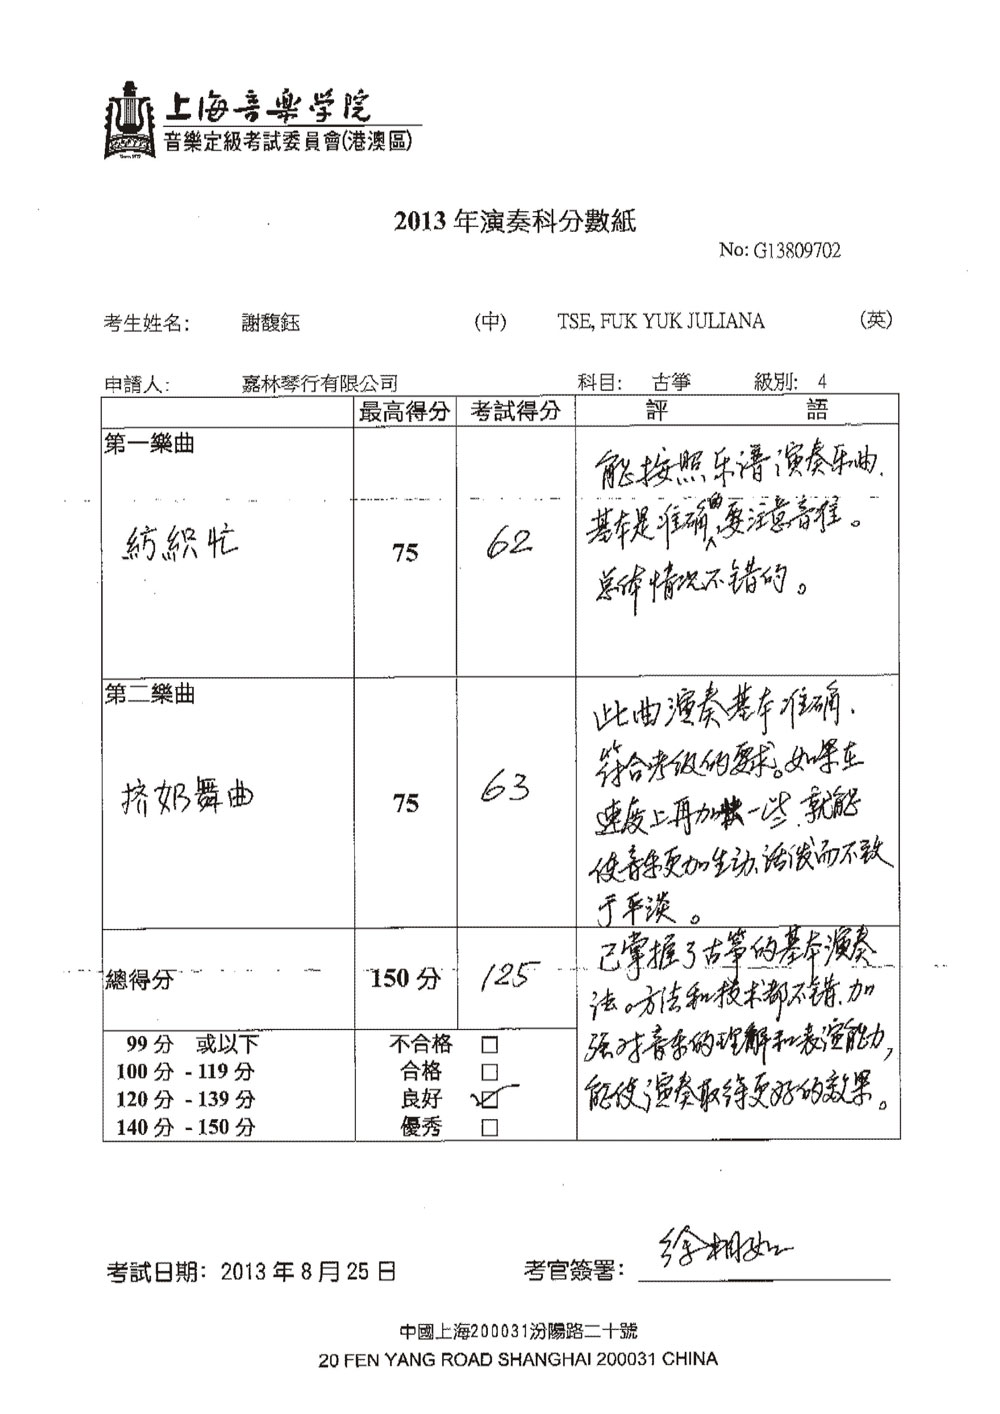 上海音樂学院
音樂定級考試委員會(港澳區)
2013 年演奏科分數紙
No: G13809702
考生姓名: 謝馥鈺 (中) TSE, FUK YUK JULIANA (英)
申請人: 嘉林琴行有限公司 科目: 古箏 級別: 4
最高得分 考試得分 評 語
第一樂曲
紡織忙 75 62
能按照乐谱演奏乐曲,
基本是准确的,要注意音准。
总体情况不错的。
第二樂曲
挤奶舞曲 75 63
此曲演奏基本准确,
符合考级的要求。如果在
速度上再加快一些,就能
使音乐更加生动、活泼而不致
于平淡。
總得分 150 分 125
已掌握了古筝的基本演奏
法。方法和技术都不错,加
强对音乐的理解和表演能力,
能使演奏取得更好的效果。
99 分 或以下 不合格 □
100 分 - 119 分 合格 □
120 分 - 139 分 良好 ☑
140 分 - 150 分 優秀 □
考試日期: 2013 年 8 月 25 日 考官簽署:
中國上海200031汾陽路二十號
20 FEN YANG ROAD SHANGHAI 200031 CHINA